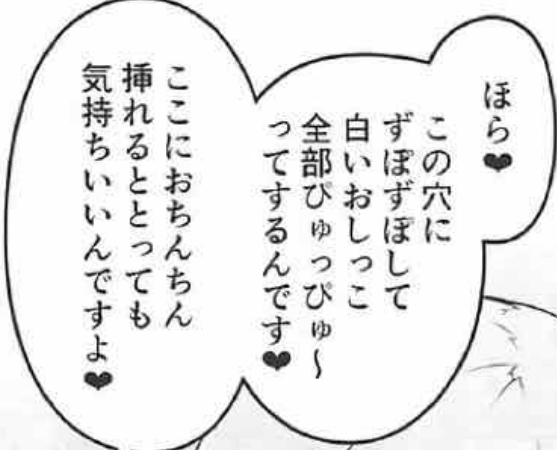 ほら♥
この穴に
ずぽずぽして
白いおしっこ
全部ぴゅっぴゅ~
ってするんです♥
ここにおちんちん
挿れるととっても
気持ちいいんですよ♥